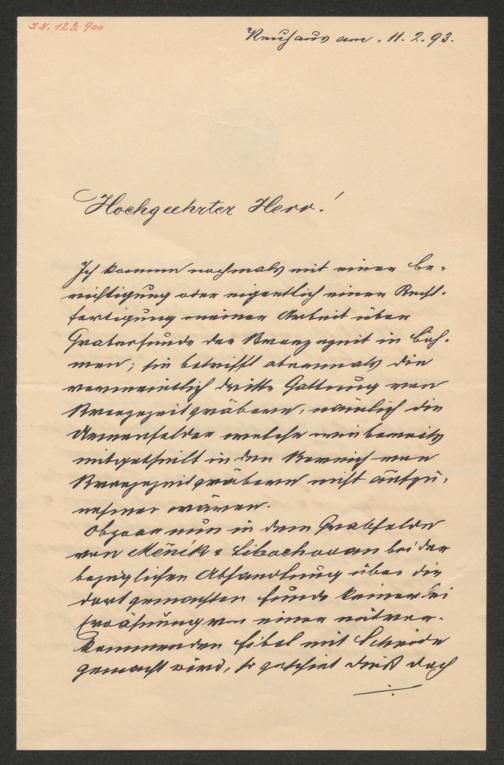 I.N. 122.900
Neuhaus am . 11. 2. 93.
Hochgeehrter Herr!
Ich komme nochmals mit einer be-
richtigung oder eigentlich einer Recht-
fertigung meiner Arbeit über
Gräberfunde der Bronzezeit in Böh-
men; sie betrifft abermals die
vermeintlich dritte Gattung von
Bronzezeitgräbern, nämlich die
Urnenfelder welche wie bereits
mitgetheilt in den Bereich von
Bronzezeitgräbern nicht aufzu,
nehmen wären.
Obzwar nun in dem Grabfelde
von Měnik = Liboch bei der
bezüglichen Abhandlung über die
dort gemachten Funde keinerlei
Erwähnung von einer
kommenden Fibel mit Scheibe
gemacht wird, so geschieht dieß doch